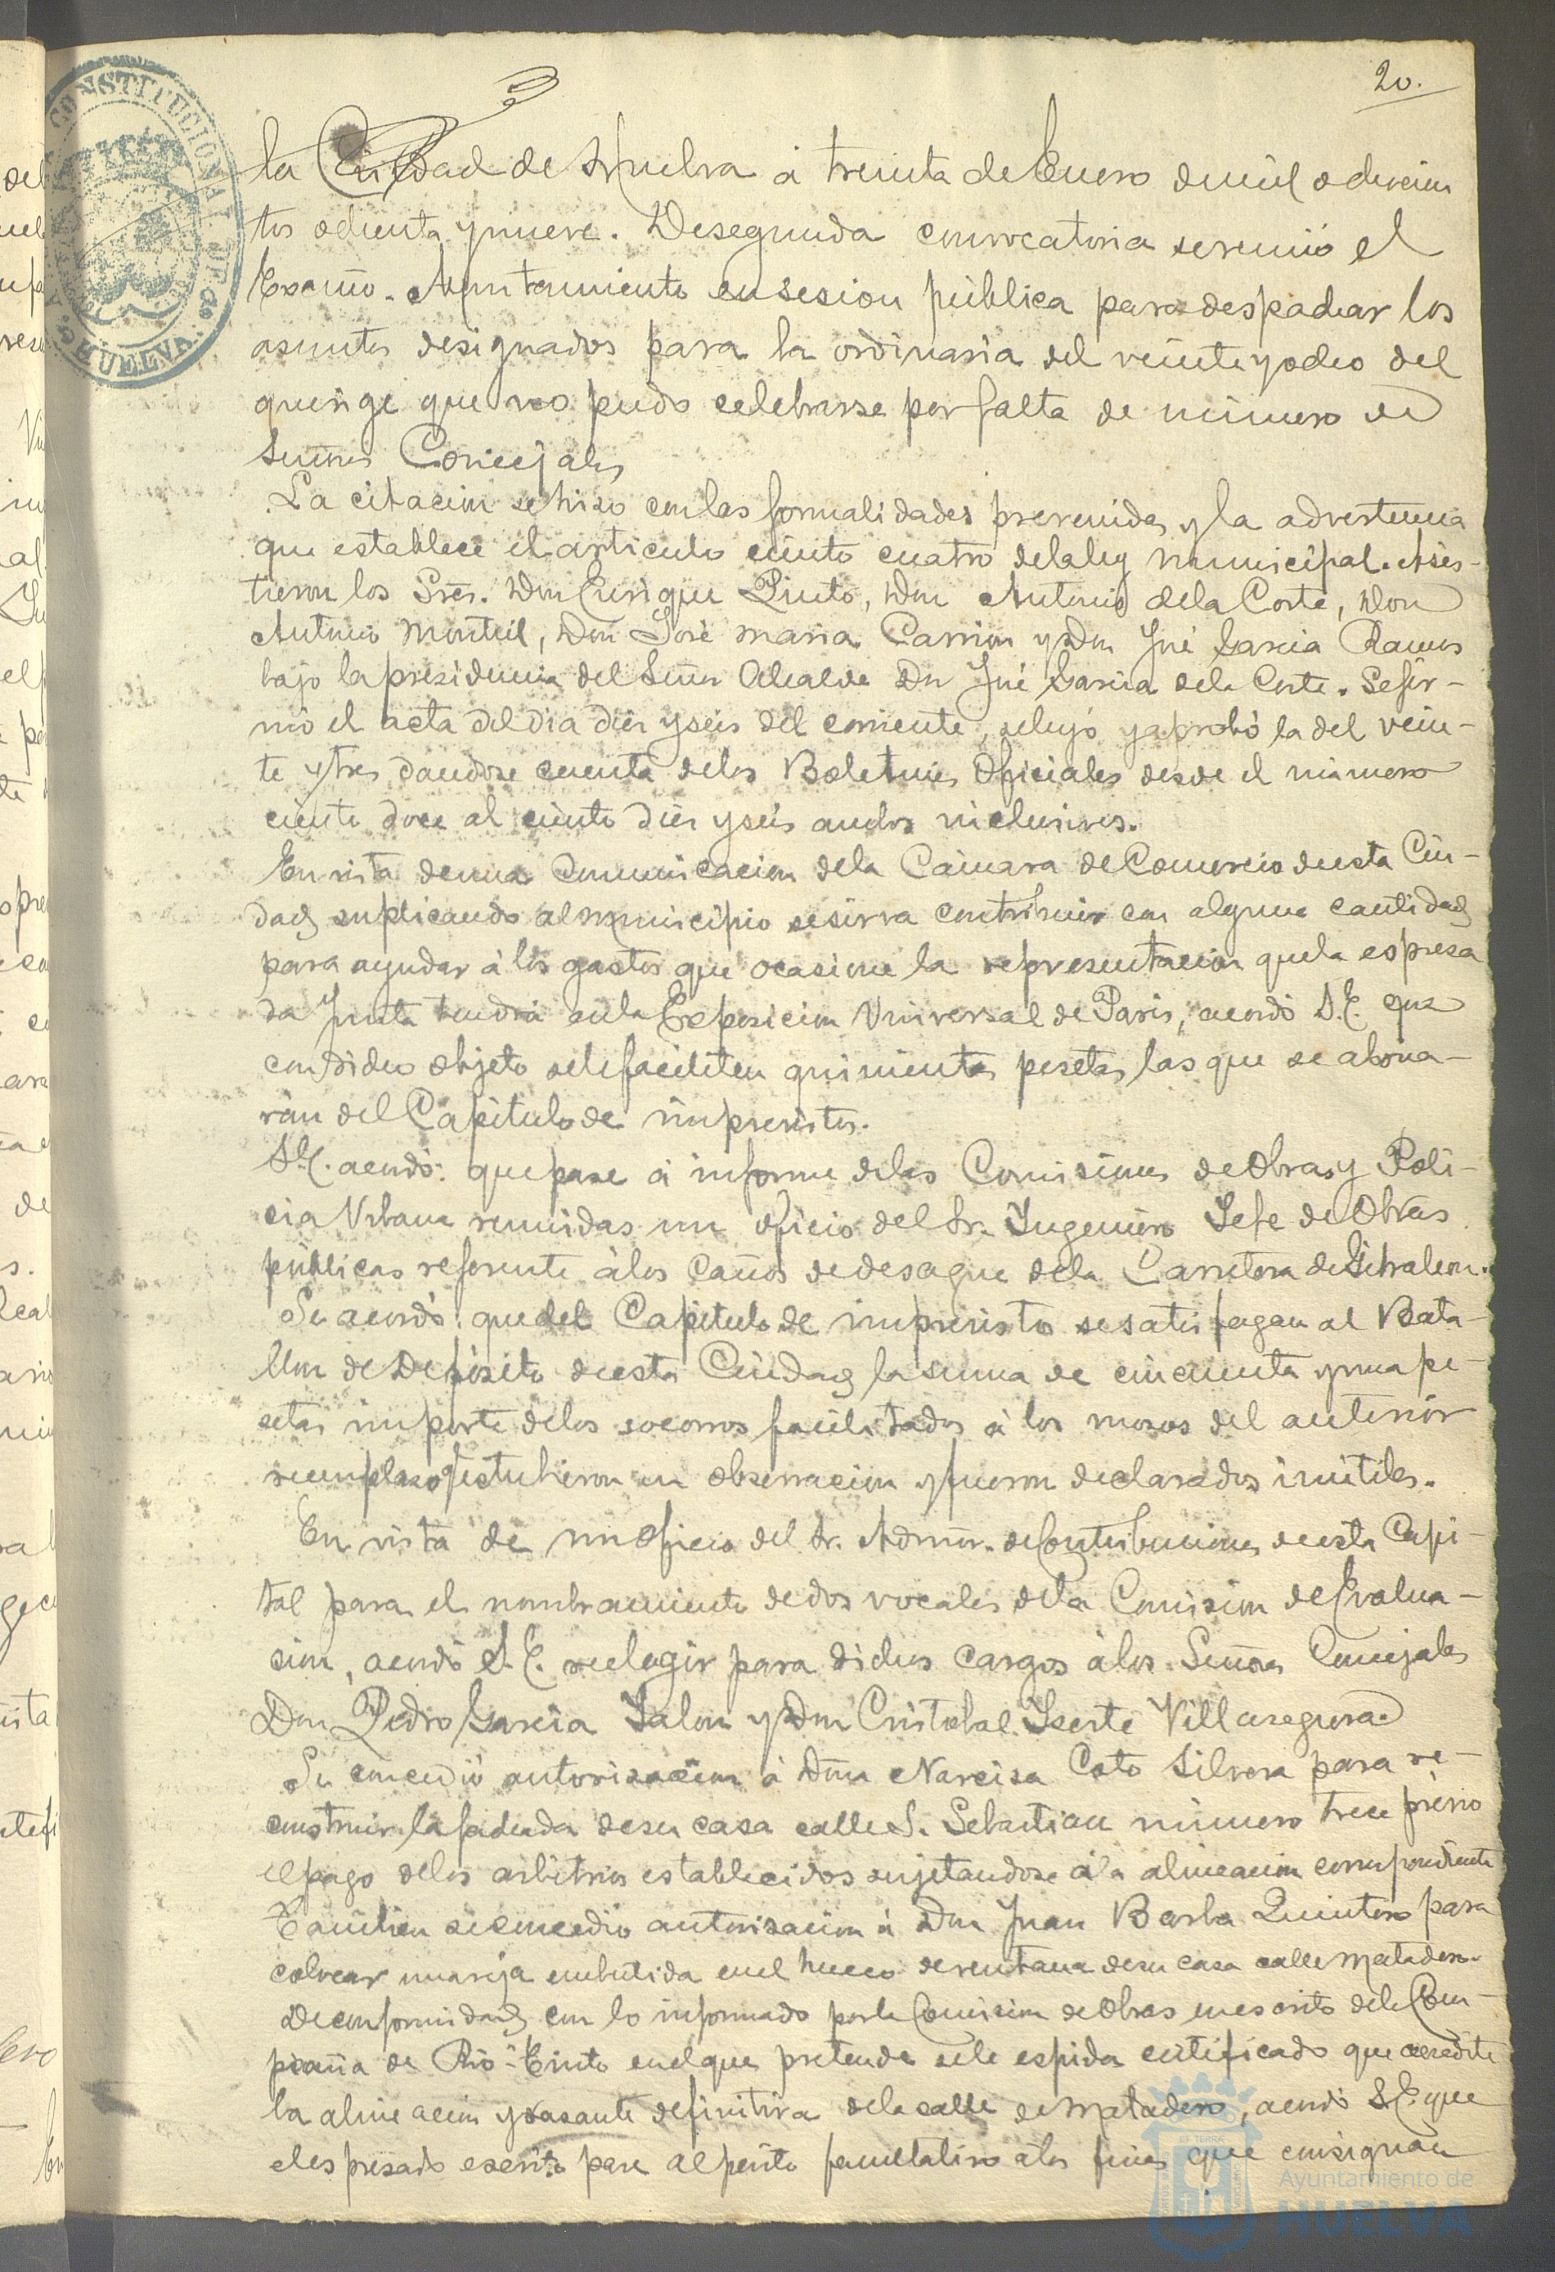 20.
la Ciudad de Huelva á treinta de Enero de mil ochocien
tos ochenta y nueve. De segunda convocatoria se reunió el
Excmo. Ayuntamiento en sesion pública para despachar los
asuntos designados para la ordinaria del veinte y ocho del
que rige que no pudo celebrarse por falta de número de
Señores Concejales
La citacion se hizo con las formalidades prevenidas y la advertencia
que establece el articulo ciento cuatro de la ley municipal. Asis-
tieron los Sres. Don Enrique Pinto, Don Antonio de la Corte, Don
Antonio Montiel, Don José maria Carrion y Don José Garcia Ramos
bajo la presidencia del Señor Alcalde Dn José Garcia de la Corte. Se fir-
mó el acta del dia diez y seis del corriente, se leyó y aprobó la del vein-
te y tres dandose cuenta de los Boletines Oficiales desde el número
ciento doce al ciento diez y seis ambos inclusives.
En vista de una comunicacion de la Cámara de Comercio de esta Ciu-
dad suplicando al municipio se sirva contribuir con alguna cantidad
para ayudar á los gastos que ocasione la representacion que la espresa
da Junta tendrá en la Exposicion Universal de Paris, acordó S.E. que
con dicho objeto se le faciliten quinientas pesetas las que se abona-
rán del Capitulo de imprevistos.
S.E. acordó: que pase á informe de las Comisiones de Obras y Poli-
cia Urbana reunidas un oficio del Sr. Ingeniero Jefe de Obras
públicas referente á los caños de desague de la Carretera de Gibraleon.
Se acordó: que del Capitulo de imprevistos se satisfagan al Bata-
llon de Depósito de esta Ciudad la suma de cincuenta y una pe-
setas importe de los socorros facilitados á los mozos del anterior
reemplazo q. estubieron en observacion y fueron declarados inútiles.
En vista de un oficio del Sr. Admor. de Contribuciones de esta Capi-
tal para el nombramiento de dos vocales de la Comision de Evalua-
cion, acordó S.E. reelegir para dichos cargos á los Señores Concejales
Don Pedro Garcia Jalon y Don Cristobal Iserte Villasegura
Se concedió autorizacion á Dña Narcisa Coto Silvera para re-
construir la fachada de su casa calle S. Sebastian número trece prévio
el pago de los arbitrios establecidos sujetandose á la alineacion correspondiente
Tambien se concedio autorizacion á Don Juan Borba Quintero para
colocar una reja embutida en el hueco de ventana de su casa calle Matadero.
De conformidad con lo informado por la Comision de Obras en escrito de la Com-
pañia de Rio-Tinto en el que pretende se le espida certificado que acredite
la alineacion y rasante definitiva de la calle de Matadero, acordó S.E. que
el espresado escrito pase al perito facultativo á los fines que consignan
CONSTITUCIONAL DE
HUELVA.
Ayuntamiento de
HUELVA